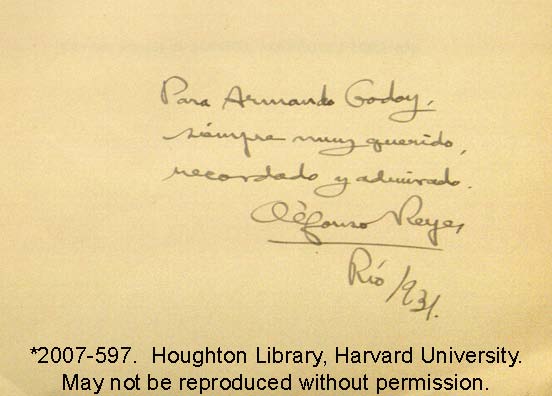 Para Armando Godoy,
siempre muy querido,
recordado y admirado.
Alfonso Reyes
Río/931.
*2007-597. Houghton Library, Harvard University.
May not be reproduced without permission.